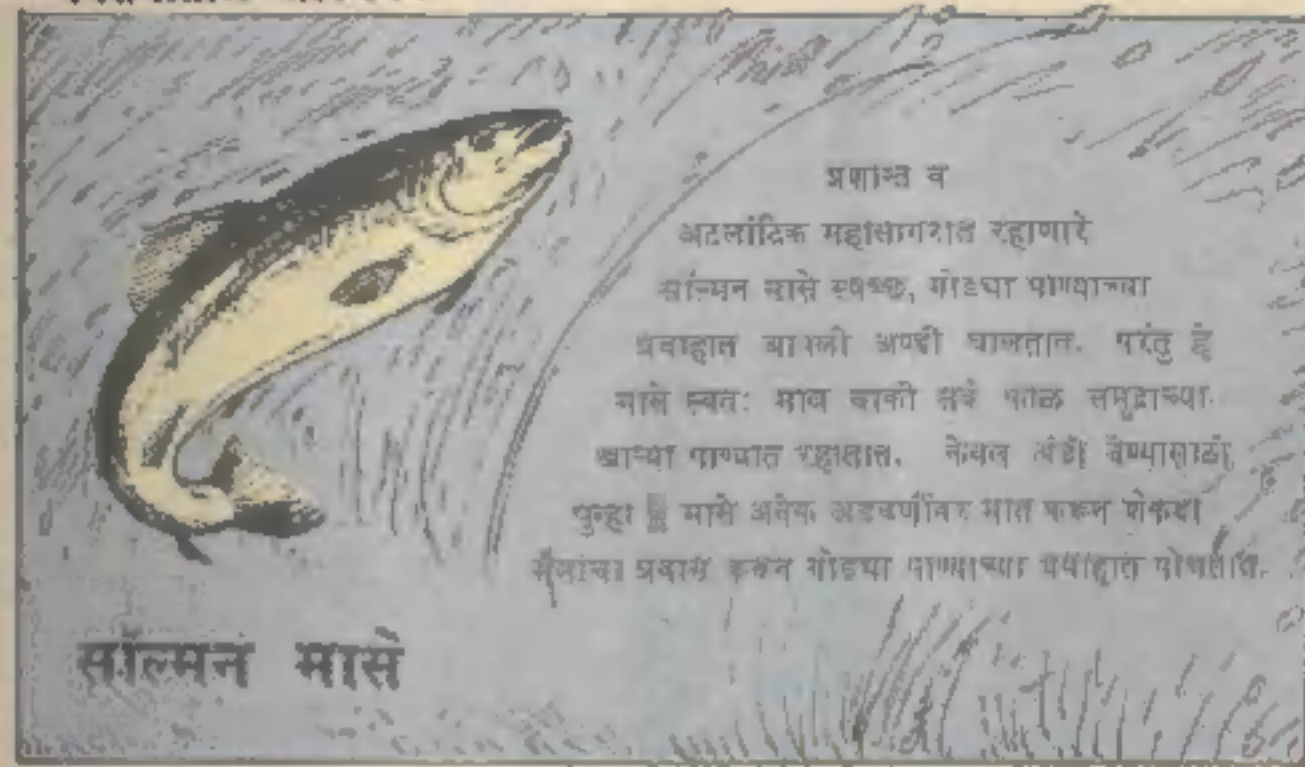 प्रशांत व
अटलांटिक महासागरात रहाणारे
सॉल्मन मासे स्वच्छ, गोड्या पाण्याच्या
प्रवाहात आपली अण्डी घालतात. परंतु हे
मासे स्वतः मात्र बाकी सर्व काळ समुद्राच्या
खाऱ्या पाण्यात रहातात. केवळ अंडी देण्यासाठी
पुन्हा हे मासे अनेक अडचणींवर मात करून शेकडो
मैलांचा प्रवास करून गोड्या पाण्याच्या प्रवाहात पोचतात.
सॉल्मन मासे